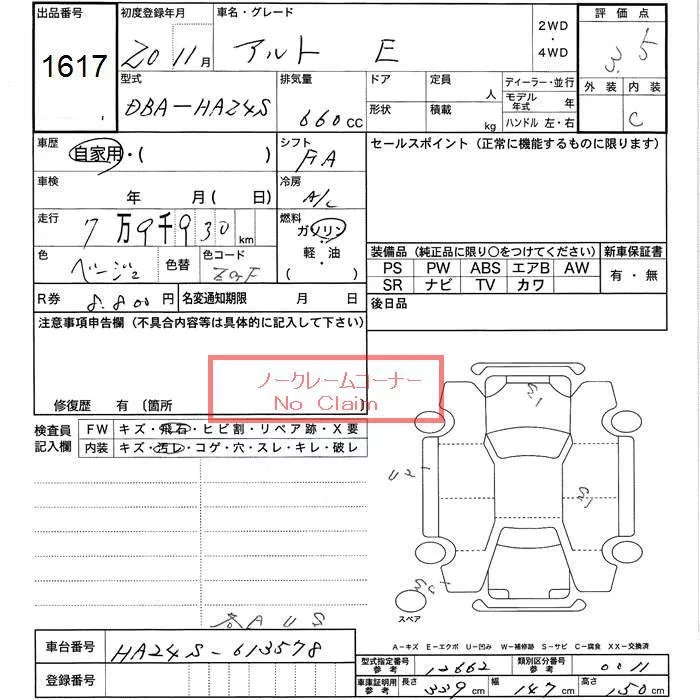 出品番号 初度登録年月 車名・グレード 2WD・4WD 評価点
1617 20 11月 アルト E 3.5
型式 排気量 ドア 定員 人 ディーラー・並行 外装 内装
DBA-HA24S 660CC 形状 積載 kg モデル年式 年 C
ハンドル 左・右
車歴 自家用・( ) シフト FA セールスポイント (正常に機能するものに限ります)
車検 年 月( 日) 冷房 A/C
走行 7万9千930km 燃料 ガソリン・軽・油 ( )
色 ベージュ 色替 色コード 装備品 (純正品に限り○をつけてください) 新車保証書
PS PW ABS エアB AW 有・無
SR ナビ TV カワ
R券 8.800円 名変通知期限 月 日 後日品
注意事項申告欄 (不具合内容等は具体的に記入して下さい)
ノークレームコーナー
No Claim
修復歴 有 〔箇所 〕
検査員記入欄 FW キズ・飛石・ヒビ割・リペア跡・X要
内装 キズ・汚レ・コゲ・穴・スレ・キレ・破レ
スペア
A-キズ E-エクボ U-凹み W-補修跡 S-サビ C-腐食 XX-交換済
車台番号 HA24S-613578 型式指定番号 参考 12662 類別区分番号 参考 0011
登録番号 車庫証明用 参考 長さ 339cm 幅 147cm 高さ 150cm